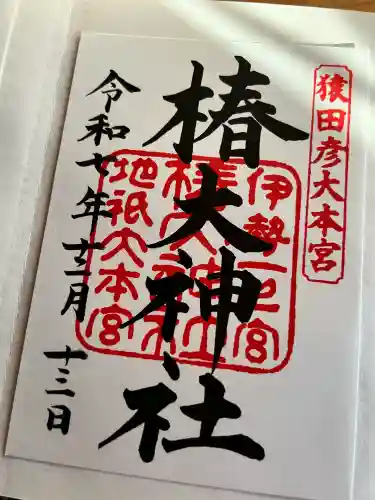 猿田彦大本宮
椿大神社
伊勢一之宮
地祇大本宮
令和七年十二月
十三日